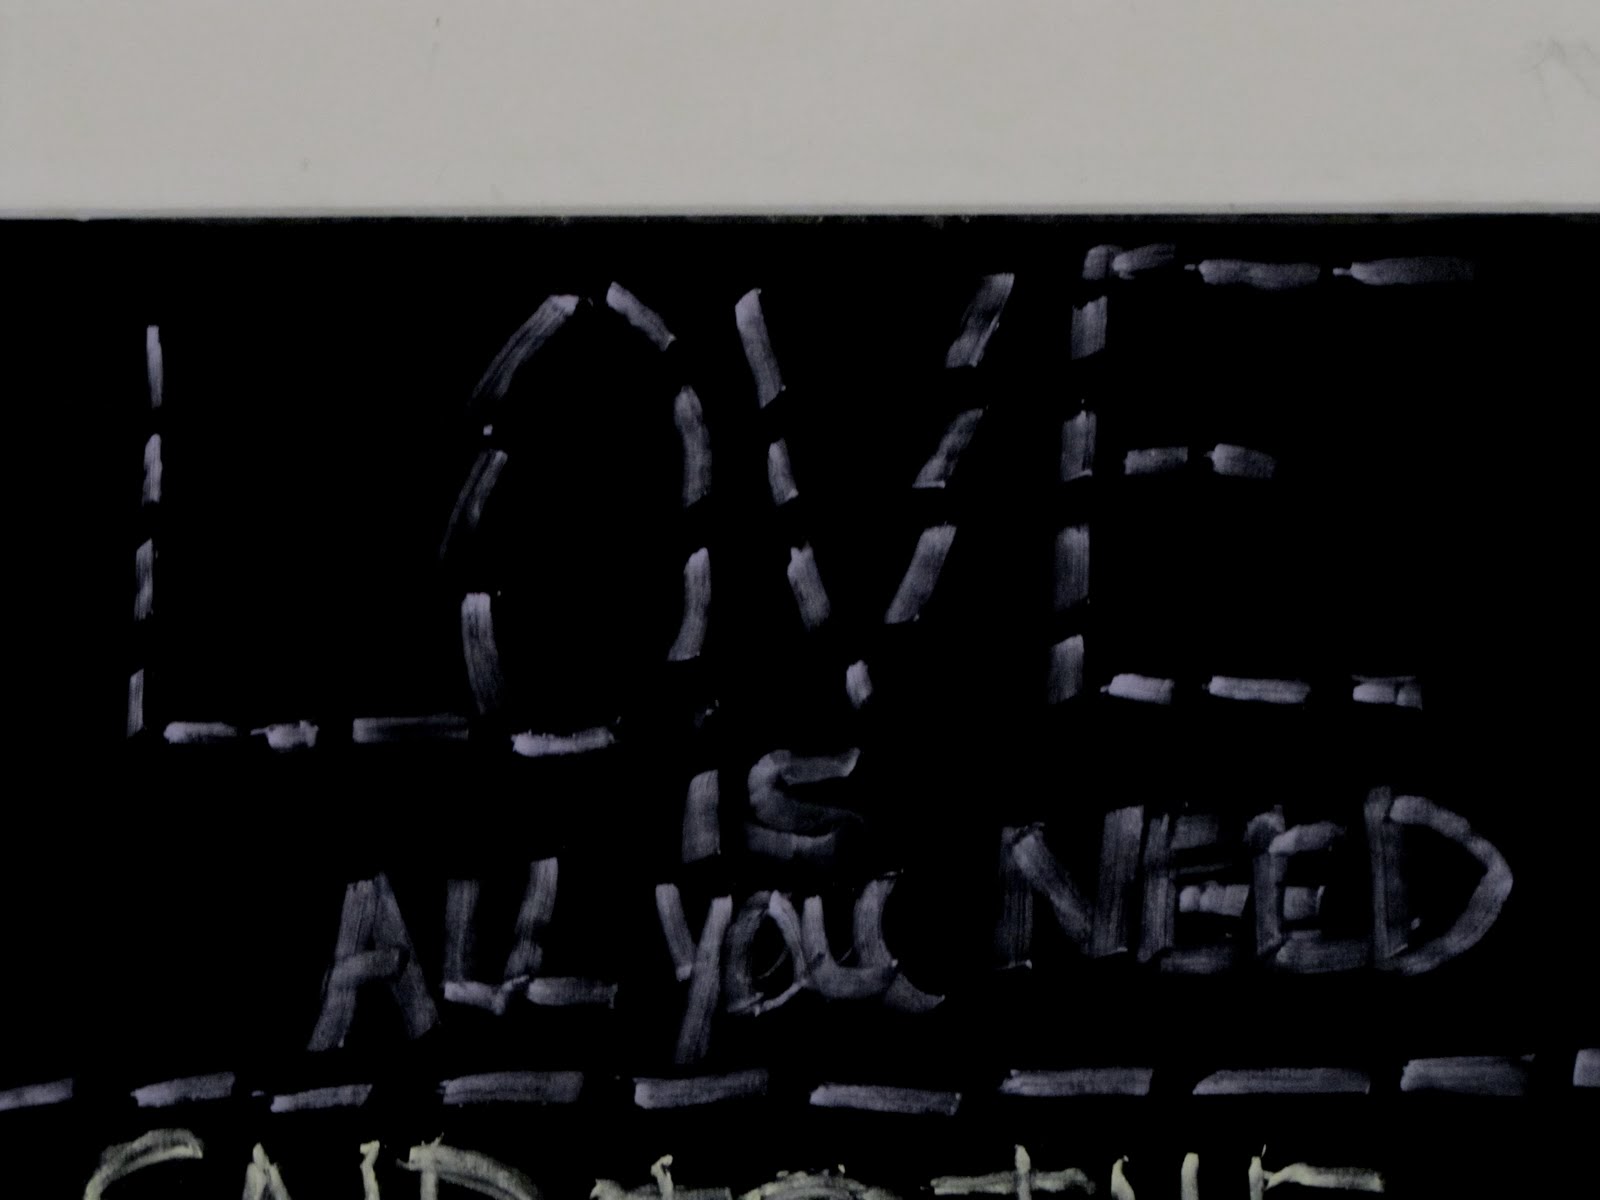 LOVE
IS
ALL YOU NEED